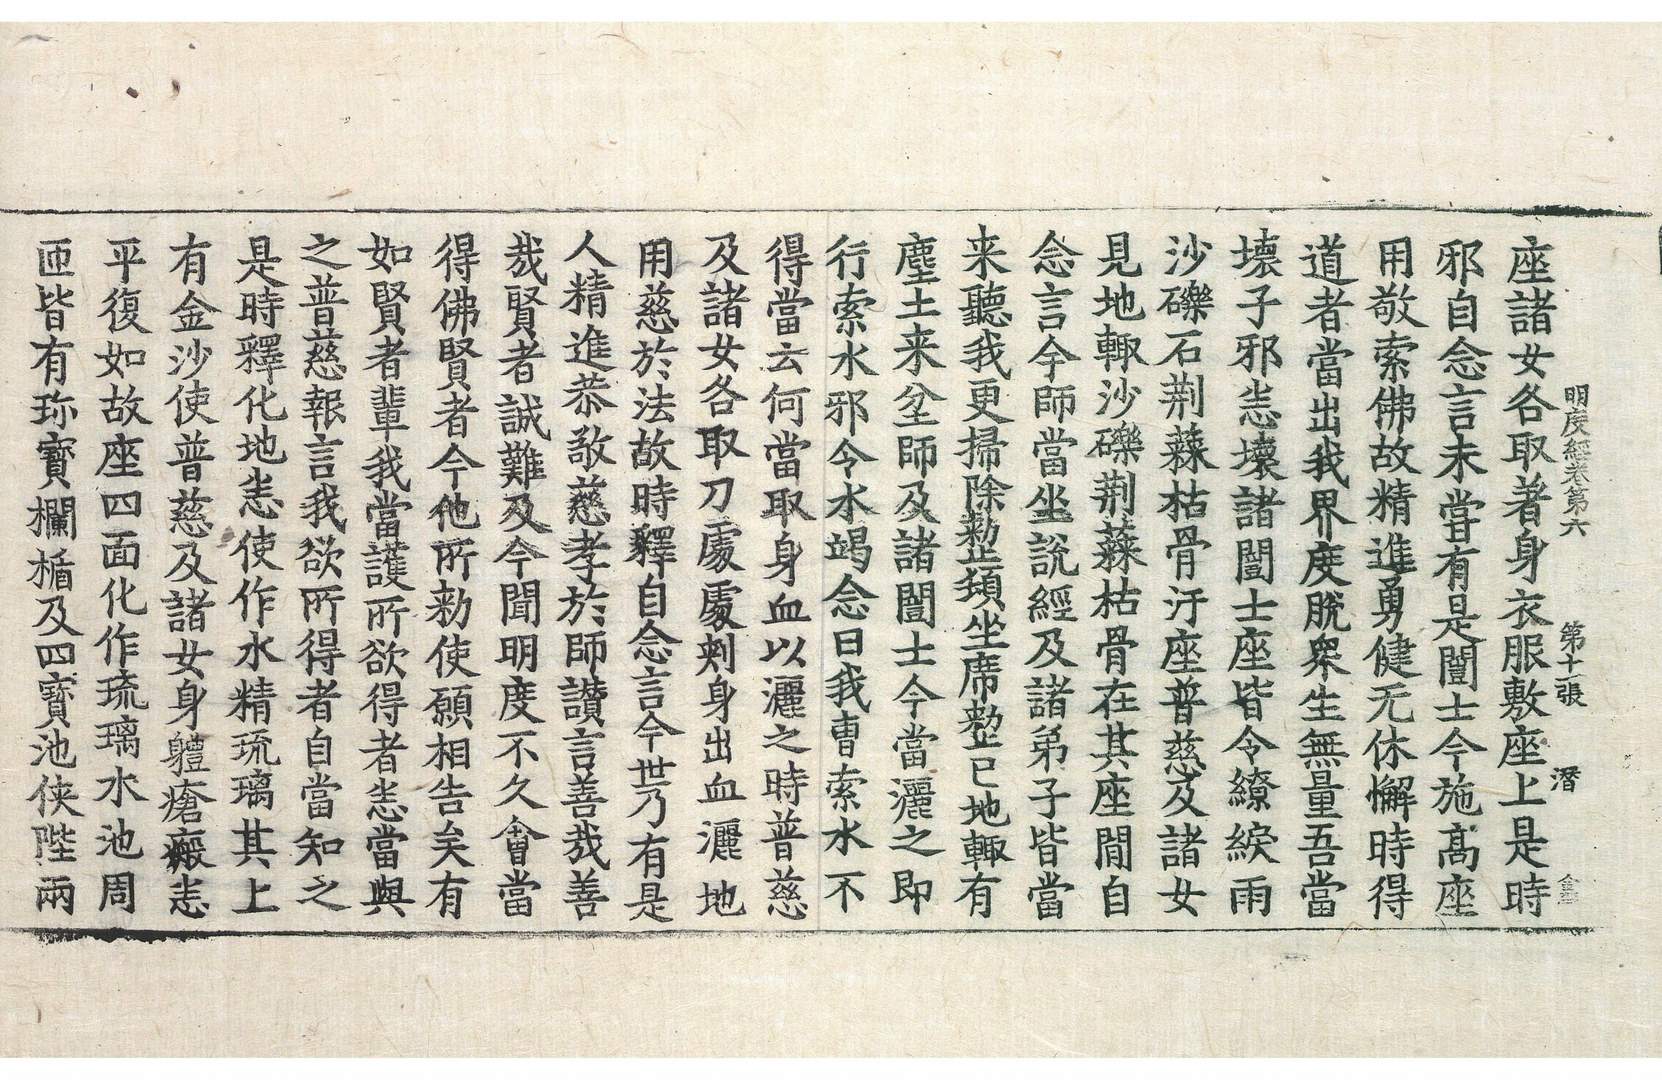 明度經卷第六 第十一張 潛
座諸女各取著身衣服敷座上是時
邪自念言未嘗有是闓士今施高座
用敬索佛故精進勇健无休懈時得
道者當出我界度脫衆生無量吾當
壞子邪恚壞諸闓士座皆令繚綟雨
沙礫石荆蕀枯骨汙座普慈及諸女
見地輙沙礫荆蕀枯骨在其座閒自
念言今師當坐說經及諸弟子皆當
来聽我更掃除懃整頓坐席整已地輙有
塵土来坌師及諸闓士今當灑之即
行索水邪令水竭念曰我曹索水不
得當云何當取身血以灑之時普慈
及諸女各取刀處處刺身出血灑地
用慈於法故時釋自念言今世乃有是
人精進恭敬慈孝於師讃言善哉善
哉賢者誠難及今聞明度不久會當
得佛賢者今他所勑使願相告矣有
如賢者輩我當護所欲得者恚當與
之普慈報言我欲所得者自當知之
是時釋化地恚使作水精琉璃其上
有金沙使普慈及諸女身軆瘡瘢恚
平復如故座四面化作琉璃水池周
匝皆有珎寶欄楯及四寶池俠陛兩